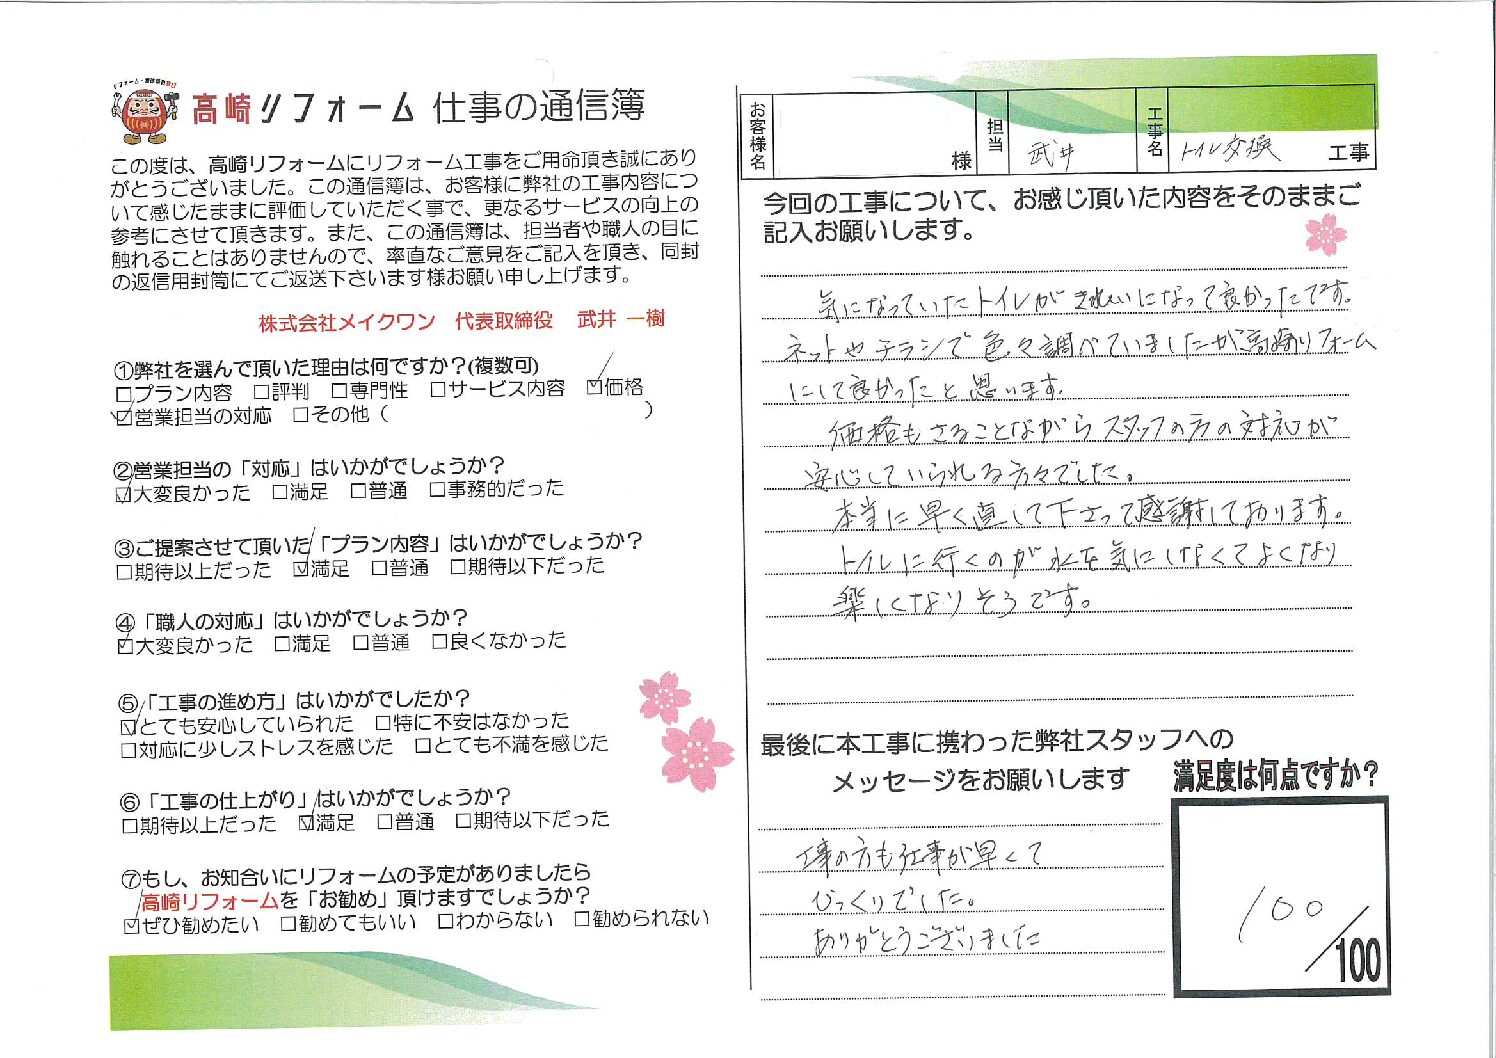 高崎リフォーム 仕事の通信簿
この度は、高崎リフォームにリフォーム工事をご用命頂き誠にあり
がとうございました。この通信簿は、お客様に弊社の工事内容につ
いて感じたままに評価していただく事で、更なるサービスの向上の
参考にさせて頂きます。また、この通信簿は、担当者や職人の目に
触れることはありませんので、率直なご意見をご記入を頂き、同封
の返信用封筒にてご返送下さいます様お願い申し上げます。
株式会社メイクワン 代表取締役 武井 一樹
①弊社を選んで頂いた理由は何ですか？(複数可)
□プラン内容 □評判 □専門性 □サービス内容 ☑価格
☑営業担当の対応 □その他（ ）
②営業担当の「対応」はいかがでしょうか？
☑大変良かった □満足 □普通 □事務的だった
③ご提案させて頂いた「プラン内容」はいかがでしょうか？
□期待以上だった ☑満足 □普通 □期待以下だった
④「職人の対応」はいかがでしょうか？
☑大変良かった □満足 □普通 □良くなかった
⑤「工事の進め方」はいかがでしたか？
☑とても安心していられた □特に不安はなかった
□対応に少しストレスを感じた □とても不満を感じた
⑥「工事の仕上がり」はいかがでしょうか？
□期待以上だった ☑満足 □普通 □期待以下だった
⑦もし、お知合いにリフォームの予定がありましたら
高崎リフォームを「お勧め」頂けますでしょうか？
☑ぜひ勧めたい □勧めてもいい □わからない □勧められない
お客様名 様 担当 武井 工事名 トイレ交換 工事
今回の工事について、お感じ頂いた内容をそのままご
記入お願いします。
気になっていたトイレがきれいになって良かったです。
ネットやチラシで色々調べていましたが高崎リフォーム
にして良かったと思います。
価格もさることながらスタッフの方の対応が
安心していられる方々でした。
本当に早く直して下さって感謝しております。
トイレに行くのが水を気にしなくてよくなり
楽しくなりそうです。
最後に本工事に携わった弊社スタッフへの
メッセージをお願いします
工事の方も仕事が早くて
びっくりでした。
ありがとうございました
満足度は何点ですか？
100/100